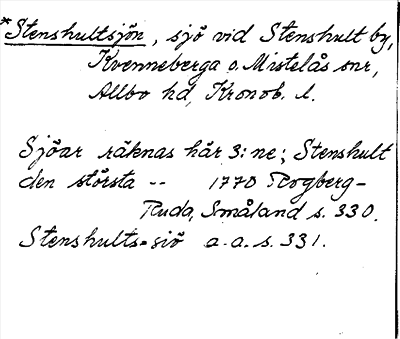 *Stenshultsjön, sjö vid Stenshult by,
Kvenneberga o. Mistelås snr,
Allbo hd, Kronob. l.
Sjöar räknas här 3:ne; Stenshult
den största -- 1770 Rogberg-
Ruda, Småland s. 330.
Stenshults-siö a.a. s. 331.